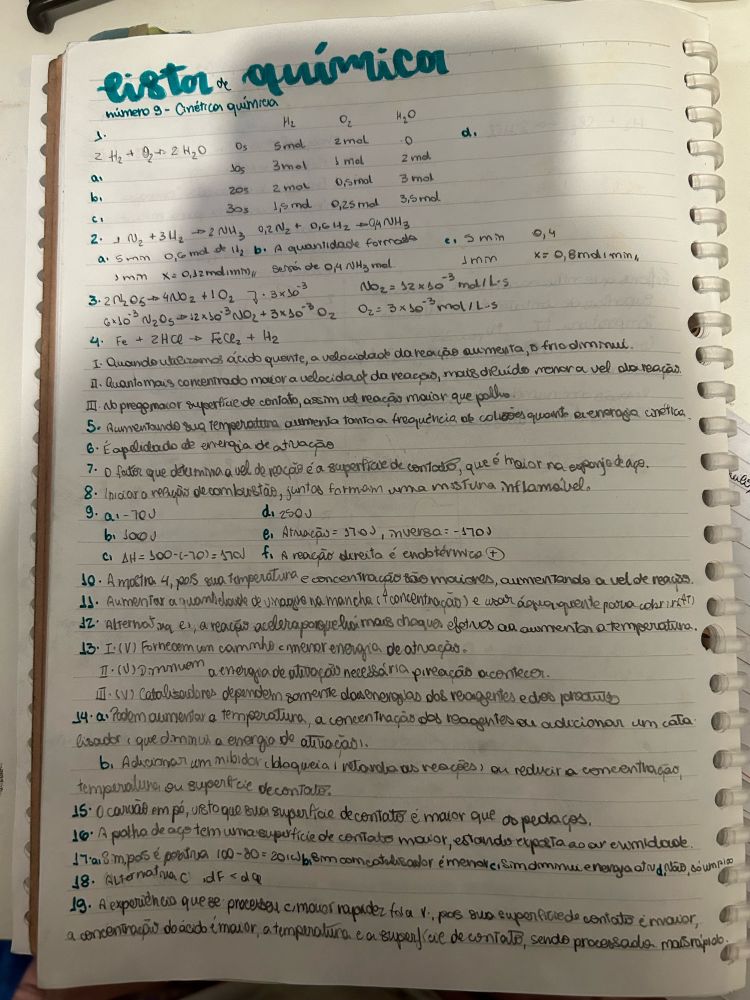 Lista de química
número 9 - Cinética química
1. H₂ O₂ H₂O d.
2H₂ + O₂ → 2H₂O 0s 5mol 2mol 0
a. 10s 3mol 1mol 2mol
b. 20s 2mol 0,5mol 3mol
c. 30s 1,5mol 0,25mol 3,5mol
2. 1N₂ + 3H₂ → 2NH₃ 0,2N₂ + 0,6H₂ → 0,4NH₃
a. 5min 0,6mol de H₂ b. A quantidade formada c. 5min 0,4
1min x = 0,12mol/min,, será de 0,4 NH₃ mol. 1min x = 0,8mol/min,,
3. 2N₂O₅ → 4NO₂ + 1O₂ · 3×10⁻³ NO₂ = 12×10⁻³ mol/L·s
6×10⁻³ N₂O₅ → 12×10⁻³ NO₂ + 3×10⁻³ O₂ O₂ = 3×10⁻³ mol/L·s
4. Fe + 2HCl → FeCl₂ + H₂
I. Quando utilizamos ácido quente, a velocidade da reação aumenta, o frio diminui.
II. Quanto mais concentrado maior a velocidade da reação, mais diluído menor a vel da reação.
III. No prego maior superfície de contato, assim vel reação maior que palha.
5. Aumentando sua temperatura aumenta tanto a frequência de colisões quanto a energia cinética.
6. É apelidado de energia de ativação
7. O fator que determina a vel de reação é a superfície de contato, que é maior na esponja de aço.
8. Iniciar a reação de combustão, juntas formam uma mistura inflamável.
9. a. -70J d. 250J
b. 100J e. Ativação = 170J, inversa: -170J
c. ΔH = 100-(-70) = 170J f. A reação direita é endotérmica (+)
10. A mostra 4, pois sua temperatura e concentração são maiores, aumentando a vel de reação.
11. Aumentar a quantidade de vinagre na mancha (↑concentração) e usar água quente para cobrir (↑T)
12. Alternativa e, a reação acelera porque há mais choques efetivos ao aumentar a temperatura.
13. I. (V) Fornecem um caminho c menor energia de ativação.
II. (V) Diminuem a energia de ativação necessária p/ reação acontecer.
III. (V) Catalisadores dependem somente das energias dos reagentes e dos produtos
14. a. Podem aumentar a temperatura, a concentração dos reagentes ou adicionar um cata
lisador (que diminui a energia de ativação).
b. Adicionar um inibidor (bloqueia / retarda as reações) ou reduzir a concentração,
temperatura ou superfície de contato.
15. O carvão em pó, visto que sua superfície de contato é maior que os pedaços.
16. A palha de aço tem uma superfície de contato maior, estando exposta ao ar e umidade.
17. a. Sim, pois é positiva 100-80 = 20 b. Sim com catalisador é menor c. Sim diminui energia d. Não, só
18. Alternativa C
19. A experiência que se processou c/ maior rapidez foi a V, pois sua superfície de contato é maior,
a concentração do ácido é maior, a temperatura e a superfície de contato, sendo processada mais rápido.